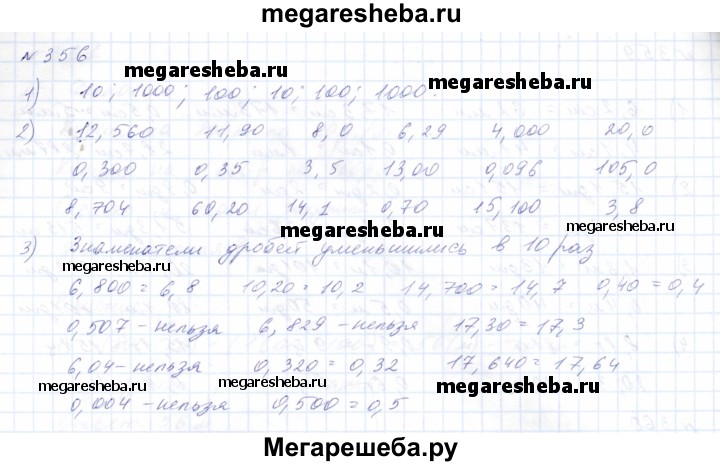 megaresheba.ru
№ 356
megaresheba.ru
megaresheba.ru
1) 10; 1000; 100; 10; 100; 1000.
2) 12,560 11,90 8,0 6,29 4,000 20,0
megaresheba.ru
0,300 0,35 3,5 13,00 0,096 105,0
8,704 60,20 14,1 0,70 15,100 3,8
megaresheba.ru
megaresheba.ru
3) Знаменатели дробей уменьшились в 10 раз
megaresheba.ru
megaresheba.ru
6,800 = 6,8 10,20 = 10,2 14,700 = 14,7 0,40 = 0,4
0,507 - нельзя 6,829 - нельзя 17,30 = 17,3
6,04 - нельзя 0,320 = 0,32 17,640 = 17,64
megaresheba.ru
megaresheba.ru
megaresheba.ru
0,004 - нельзя 0,500 = 0,5
Мегарешеба.ру